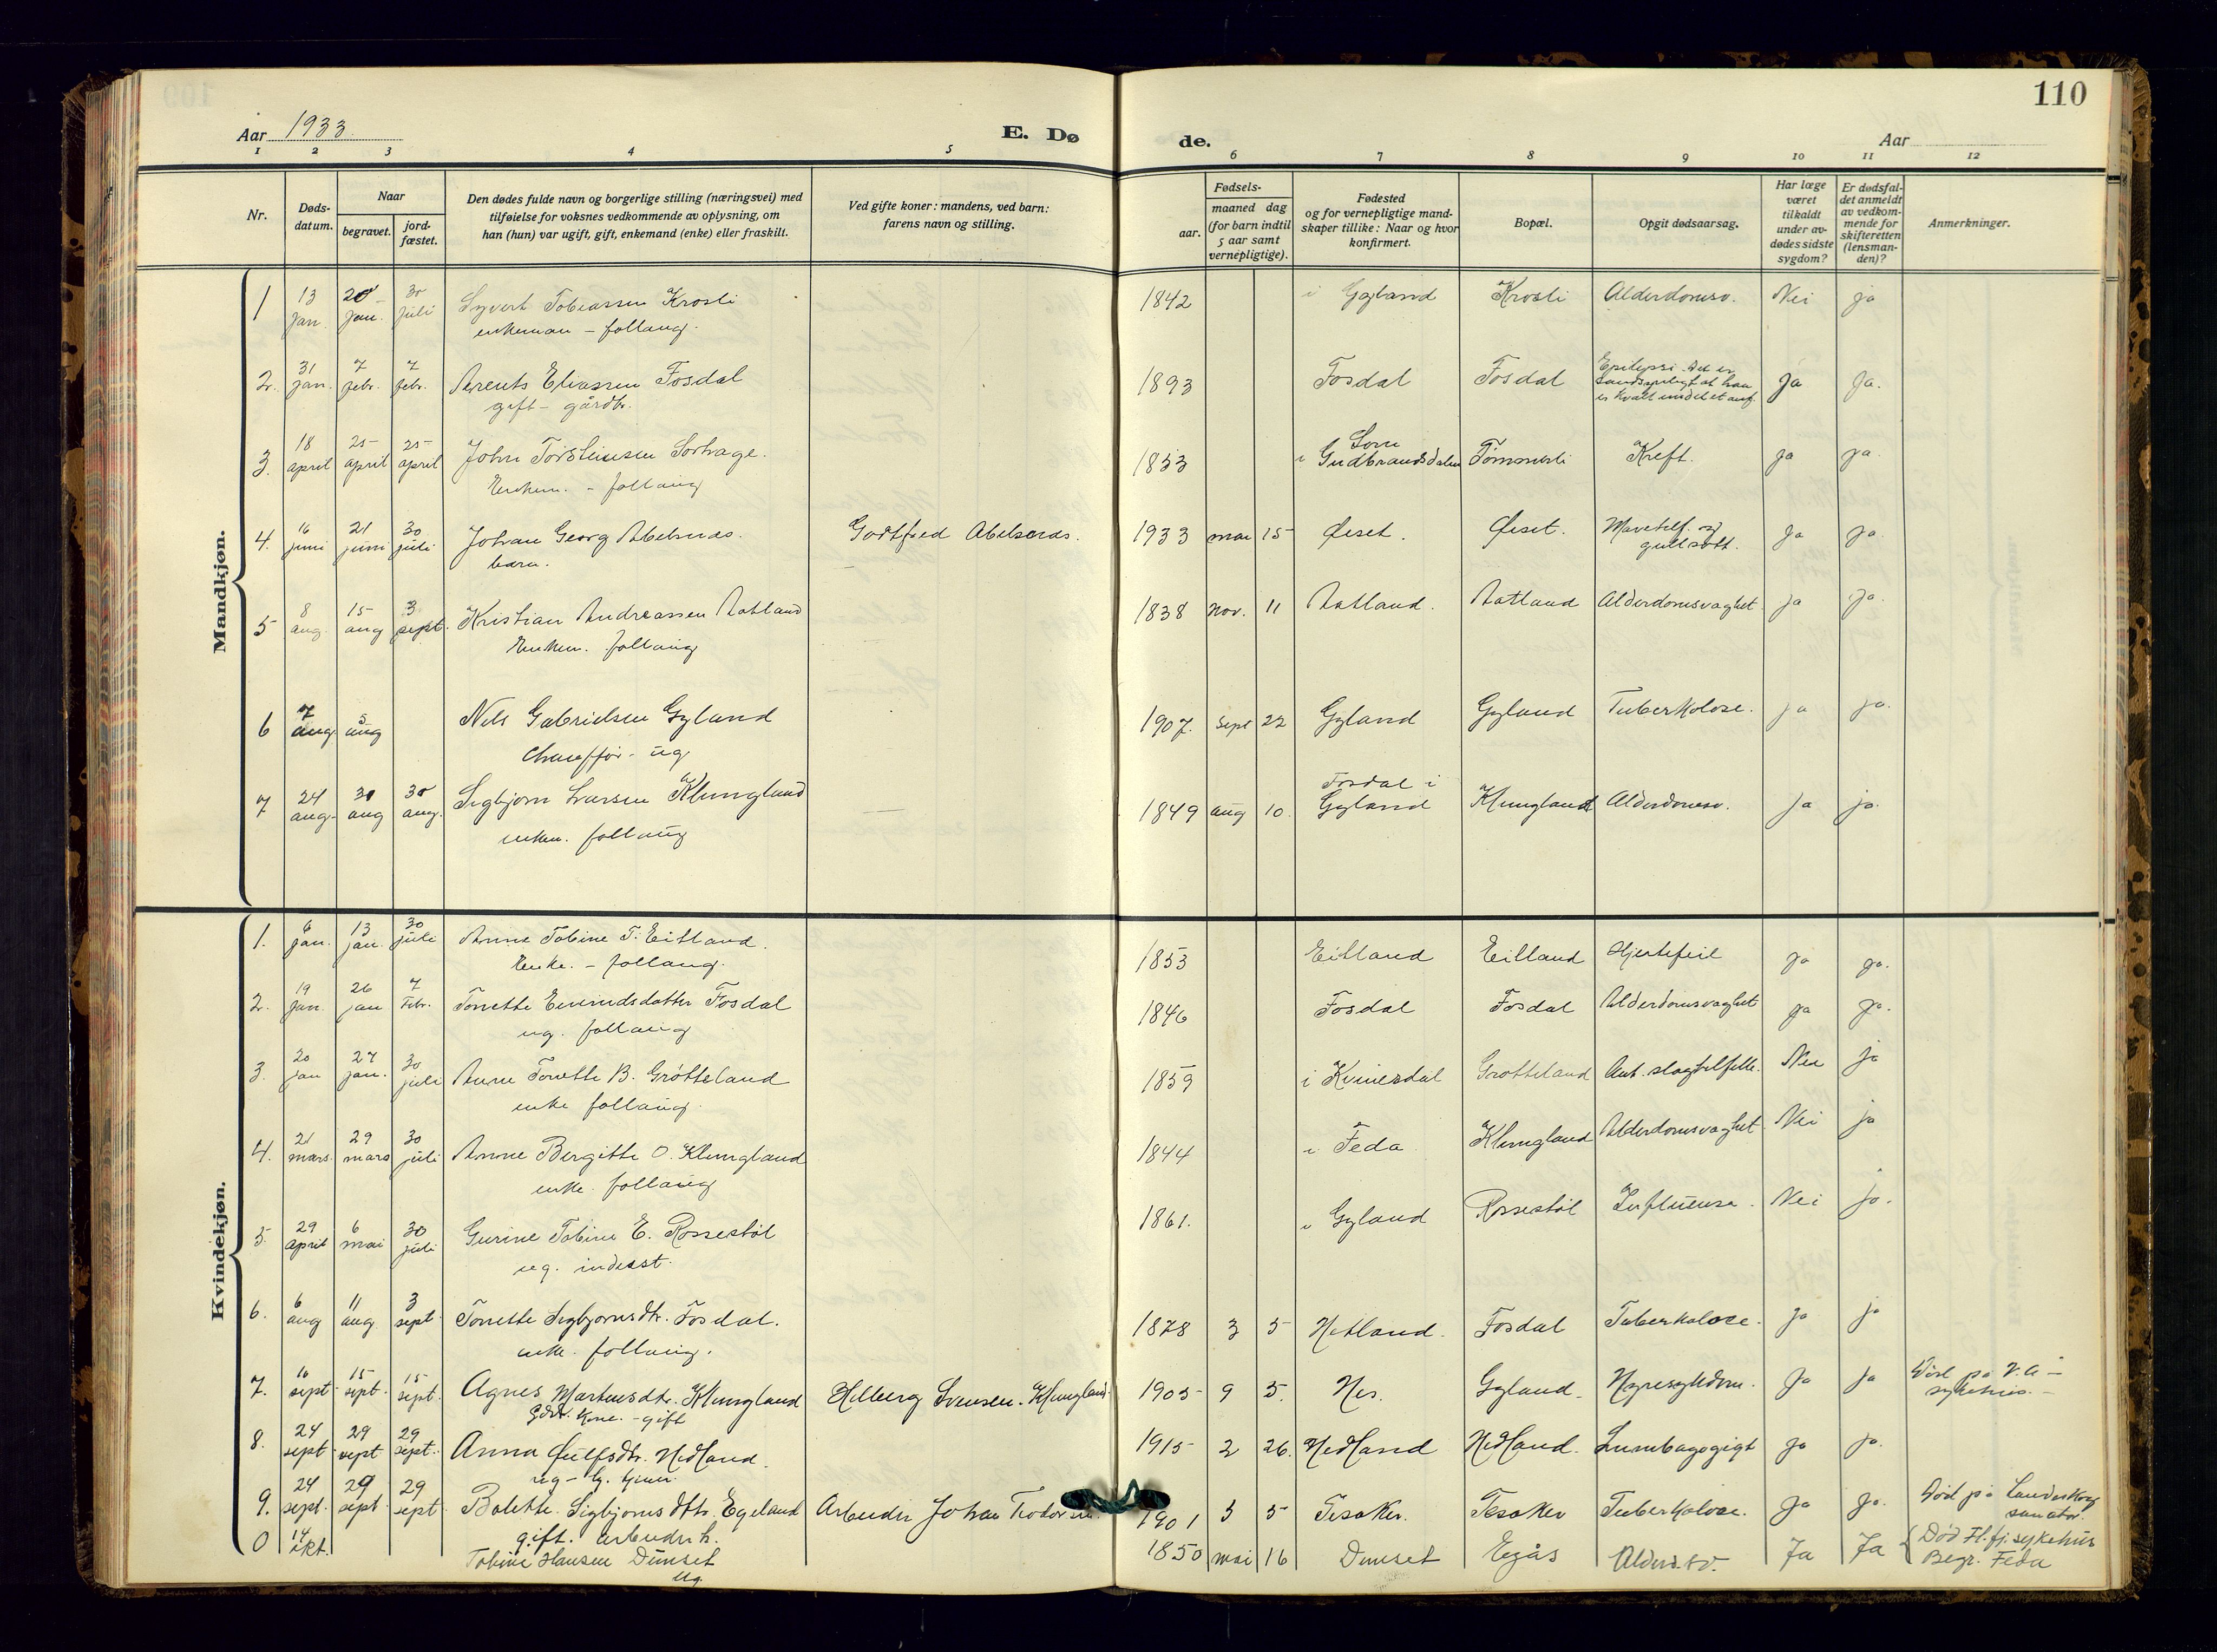 110
Aar 1933
E. Dø
de.
Aar
1 2 3 4 5 6 7 8 9 10 11 12
Nr.
Døds-
datum.
Naar
begravet.
jord-
fæstet.
Den dødes fulde navn og borgerlige stilling (næringsvei) med
tilføielse for voksnes vedkommende av oplysning, om
han (hun) var ugift, gift, enkemand (enke) eller fraskilt.
Ved gifte koner: mandens, ved barn:
farens navn og stilling.
Fødsels-
aar.
maaned dag
(for barn indtil
5 aar samt
vernepligtige).
Fødested
og for vernepligtige mand-
skaper tillike: Naar og hvor
konfirmert.
Bopæl.
Opgit dødsaarsag.
Har læge
været
tilkaldt
under av-
dødes sidste
sygdom?
Er dødsfal-
det anmeldt
av vedkom-
mende for
skifteretten
(lensman-
den)?
Anmerkninger.
Mandkjøn.
1 13 jan. 20 jan. 30 juli Syvert Tobiassen Krosli 1842 i Gyland Krosli Alderdomsv. Nei ja
enkeman - follaug.
2. 31 jan. 7 febr. 7 febr. Arents Eliassen Fosdal 1893 Fosdal Fosdal Epilepsi. Det er
sandsynligt at han
er kvalt under et anf. Ja Ja.
gift - gårdbr.
3. 18 april 25 april 25 april John Torsteinsen Sorhage. 1853 Lom
i Gudbrandsdalen Tømmerli Kreft. ja ja.
Enkem. - follaug
4. 16 juni 21 juni 30 juli Johan Georg Abelsnes. Godtfred Abelsnes. 1933 mai 15 Øiset. Øiset. Mavetilf. og
gullsott. Ja ja.
barn.
5 8 aug. 15 aug 3 sept. Kristian Andreassen Aatland 1838 nov. 11 Aatland. Aatland Alderdomsvaghet ja ja.
Enkem. follaug
6 7 aug 5 aug Nils Gabrielsen Gyland 1907. sept 22 Gyland Gyland Tuberkolose. ja ja.
Chauffør - ug
7 24 aug. 30 aug 30 aug. Sigbjørn Larsen Klungland 1849 aug 10. Fosdal i
Gyland Klungland Alderdomsv. Ja ja.
enkem. follaug
Kvindekjøn.
1. 6 jan. 13 jan. 30 juli Anne Tobine T. Eitland. 1853 Eitland Eitland Hjertefeil ja ja.
Enke. - follaug.
2. 19 jan. 26 jan 7 Febr. Tonette Eivindsdatter Fosdal 1846 Fosdal Fosdal Alderdomsvaghet ja ja.
ug. follaug
3. 20 jan 27 jan. 30 juli Anne Tonette B. Grøtteland 1859 i Kvinesdal Grøtteland Ant. slagtilfelle. Nei ja
enke follaug.
4. 21 mars. 29 mars 30 juli Anne Bergitte O. Klungland 1844 i Feda Klungland Alderdomsvaghet Nei ja
enke. follaug
5. 29 April 6 mai 30 juli Gurine Tobine E. Rossestøl 1861. i Gyland Rossestøl Influensa. Nei ja.
ug. inderst.
6. 6 aug 11 aug. 3 sept. Tonette Sigbjørnsdtr. Fosdal. 1878 3 5 Netland. Fosdal Tuberkolose. Ja ja
enke. follaug.
7. 10 sept. 15 sept. 15 sept. Agnes Martinsdtr. Klungland Hilberg Svensen Klungland. 1905 9 5. Nes. Gyland. Nyresykdom. Ja ja Død på V.A
sykehus.
Gdbr. Kone. - gift
8. 24 sept. 29 sept 29 sept. Anna Øulfsdtr. Nedland. 1915 2 26. Nedland Nedland. Lumbagogigt ja ja.
ug - 
9. 24 sept. 29 sept 29 sept. Bolette Sigbjørnsdtr. Egeland Arbeider Johan Teodorsen 1901 5 5 Tesaker. Tesaker Tuberkolose. Ja Ja. Død på Landeskog
sanator.
gift. arbeiderk.
0 14 okt. Tobine Hansen Dunset 1850 mai 16 Dunset Egås Alders.sv. Ja Ja Død Fl.fj. sykehus
Begr. Feda
ug.